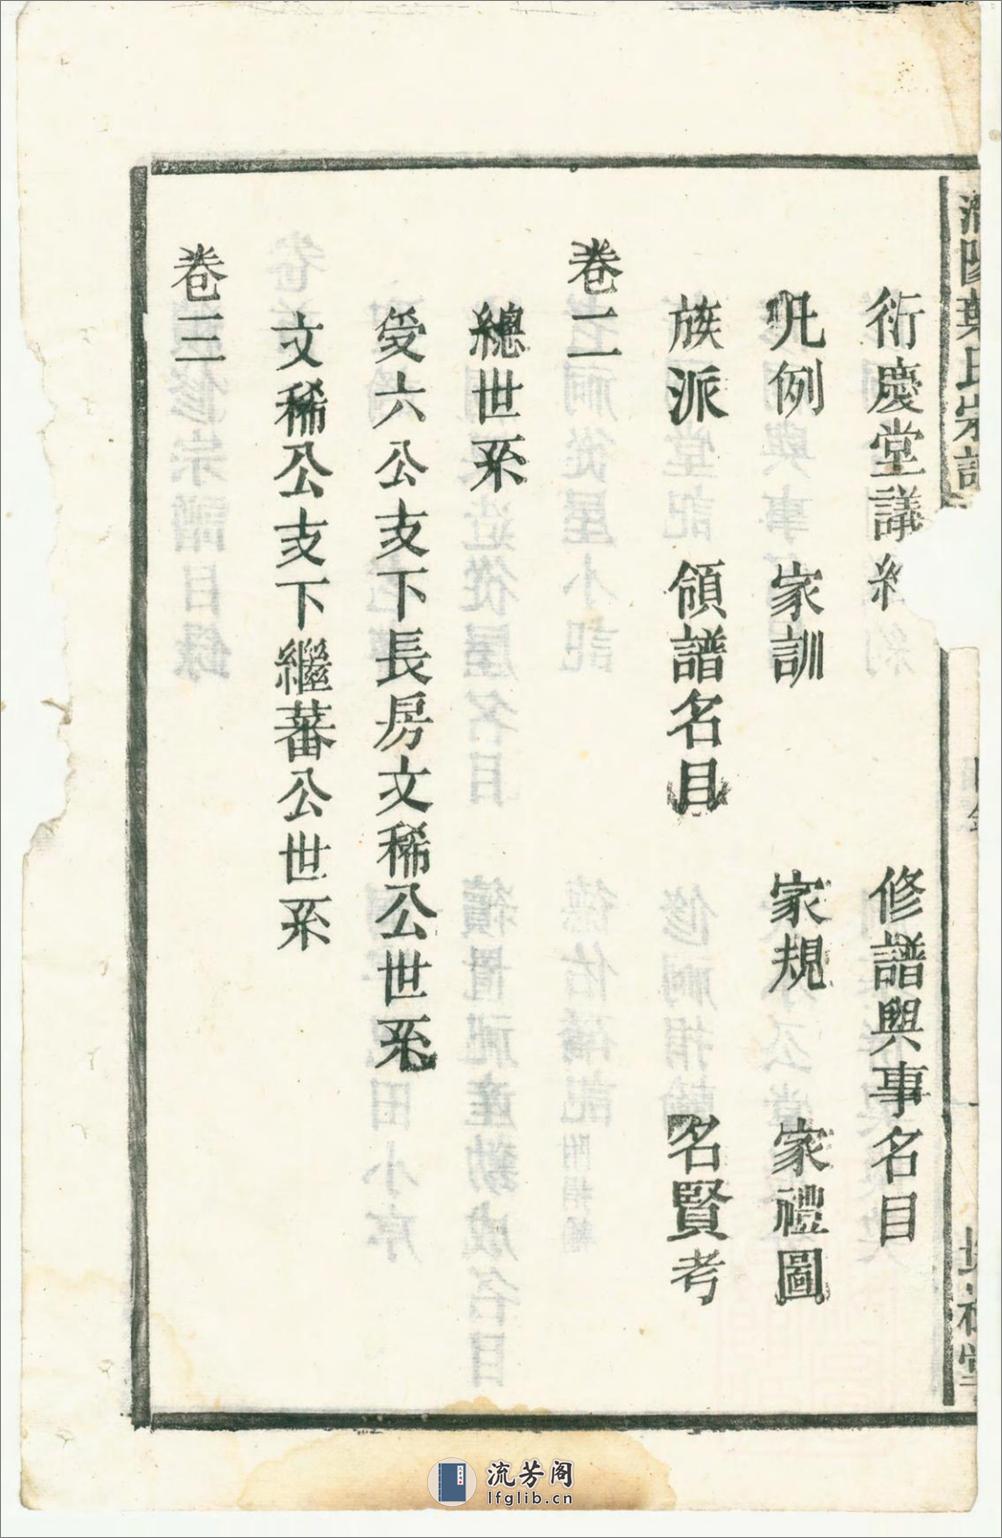 葉氏宗譜
衍慶堂議約　修譜與事名目
凡例　家訓　家規　家禮圖
族派　領譜名目　名賢考
卷二
總世系
受六公支下長房文稀公世系
文稀公支下繼蕃公世系
卷三
流芳阁
lfglib.cn